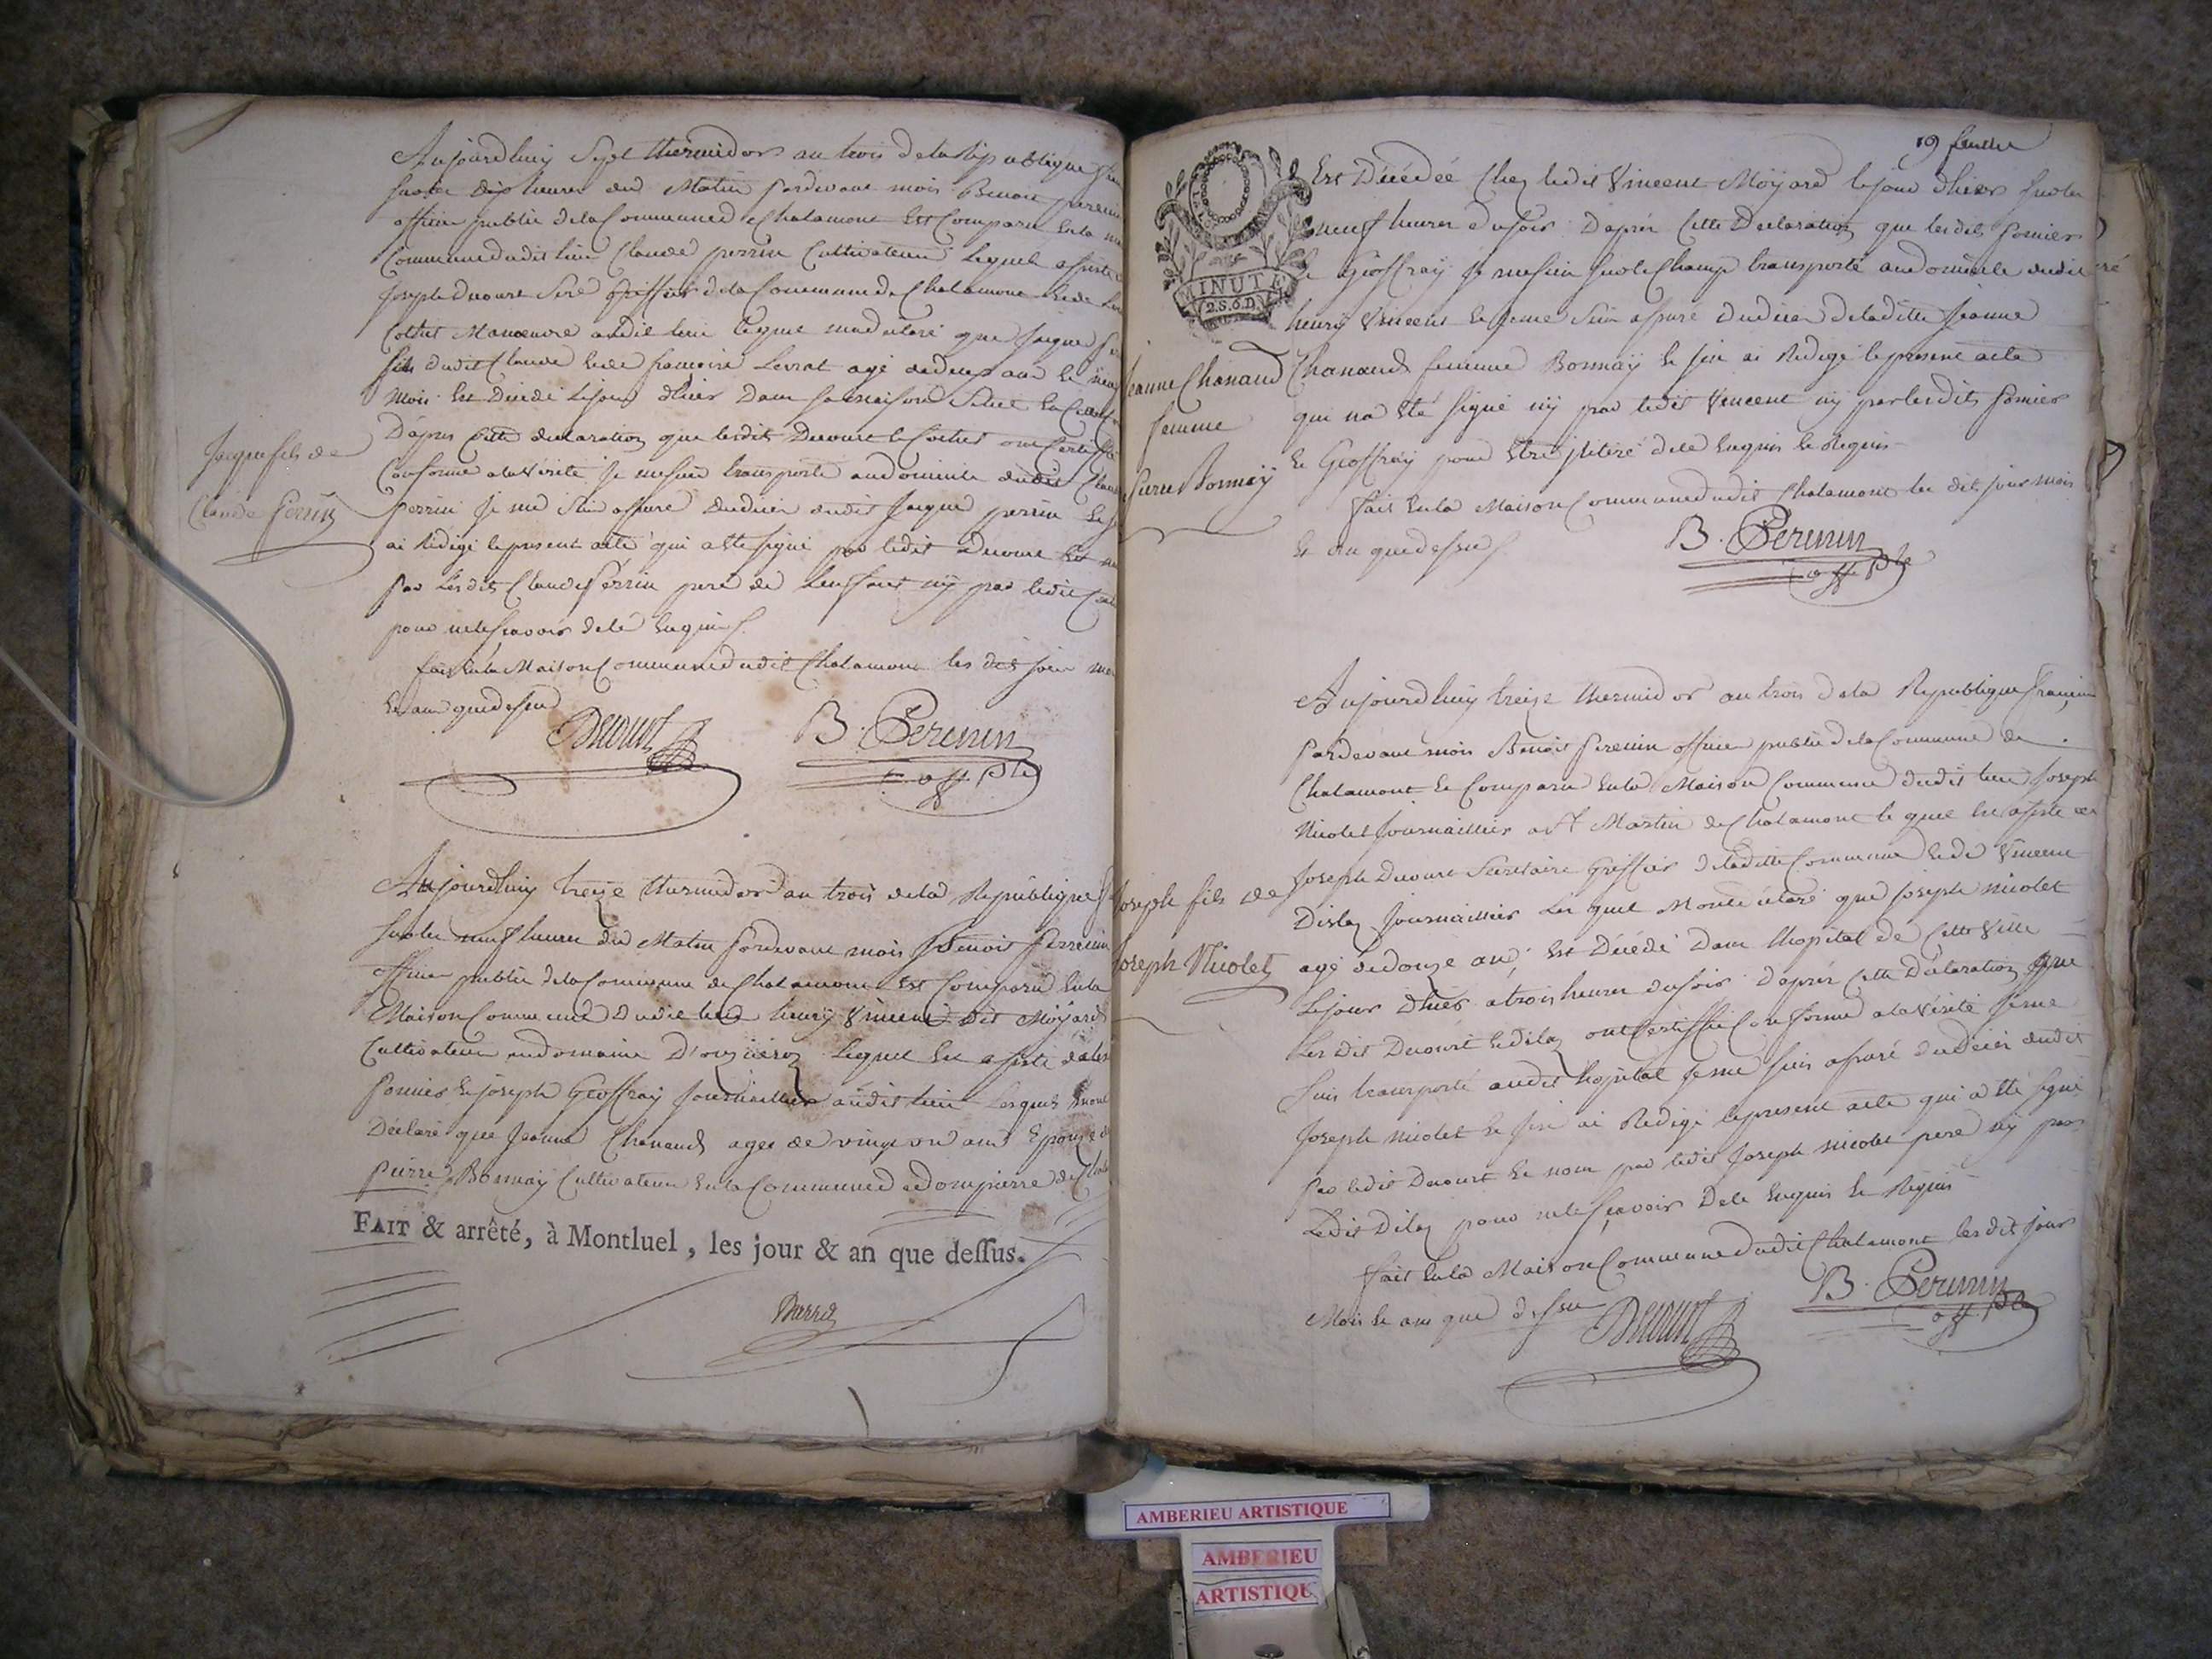 Aujourdhuy Sept thermidor an trois dela Republique
sur les dix heures du Matin pardevant mois Benoit perenin
officier public dela Commune de Chalamont Est Comparu En la
Commune dudit lieu Claude perrin Cultivateur lequel assisté
Joseph Decourt Greffier dela Commune de Chalamont
Manœuvre audit lieu lequel ma declaré que Jaque
fils dudit Claude Et de francoise Levrat agé de deux ans Et
mois Est Décédé le jour dhier Dans sa maison
Dapres Cette declaration que lesdits Decourt Et ont Certiffié
Conforme ala Vérité Je me suis transporté au domicile dudit
perrin Je me suis assuré du décé dudit Jaque perrin Et
ai Redigé le present acte qui a Eté signé par ledit Decourt Et
par Lesdits Claude Perrin pere de Lenfant ny par ledit
pour ne le scavoir de ce Enquis
fait En la Maison Commune dudit Chalamont les dits jour
Et an que dessus
Decourt B. Perenin
off plc
Jaque fils de
Claude Perrin
Aujourdhuy treize thermidor an trois dela Republique
sur les neuf heures du Matin pardevant mois Benoit Perrenin
officier public dela Commune de Chalamont Est Comparu En la
Maison Commune Dudit lieu henry Vincent dit Moÿard
Cultivateur au domaine lequel Est assisté
Pomier Et joseph Geoffray Journaillier audit lieu Lesquels
Déclaré que Jeanne Chanand agee de vingt ans Epouze
Pierre Bonnaÿ Cultivateur En la Commune de dompierre de
FAIT & arrêté, à Montluel, les jour & an que dessus.
19 feuillet
MINUTE
2.S.6.D.
Est Décédée Chez ledit Vincent Moÿard le jour dhier sur les
neuf heures du soir Daprés Cette Declaration que lesdits Pomier
Et Geoffraÿ Je me suis sur le Champ transporté au domicile dudit
henrÿ Vincent Et Jeme suis assuré du décé de laditte Jeanne
Chanand femme Bonnaÿ Et jen ai Redigé le present acte
qui na Eté signé nÿ par ledit Vincent ny par lesdits Pomier
Et Geoffraÿ pour de ce Enquis Et Requis
fait En la Maison Commune dudit Chalamont les dits jour mois
Et an que dessus
B. Perenin
off plc
Jeanne Chanand
femme
Pierre Bonnaÿ
Aujourdhuy treize thermidor an trois dela Republique francaise
Pardevant mois Benoit Perenin officier public dela Commune de
Chalamont Et Comparu En la Maison Commune dudit lieu Joseph
Nicolet Journaillier a St Martin de Chalamont le quel Est assisté de
Joseph Decourt Secretaire Greffier deladitte Commune Et de Vincent
Journaillier Les quel Mont déclaré que joseph nicolet
agé de douze ans, Est Décédé Dans lhopital de Cette Ville
Le jour Dhiér a trois heures du soir daprés Cette Déclaration que
Les Dit Decourt Et ont Certiffié Conforme ala Vérité Jeme
Suis transporté audit hopital Jeme suis assuré du décés dudit
Joseph nicolet Et jen ai Redigé le present acte qui a Eté signé
par ledit Decourt Et non par ledit Joseph nicolet pere nÿ par
Ledit pour ne le scavoir De ce Enquis Et Requis
fait En la Maison Commune dudit Chalamont les dit jour
Mois Et an que dessus
Decourt B. Perenin
off plc
Joseph fils de
Joseph Nicolet
AMBERIEU ARTISTIQUE
AMBERIEU
ARTISTIQU